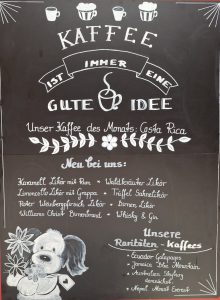 KAFFEE
IST IMMER EINE
GUTE IDEE
Unser Kaffee des Monats: Costa Rica
Neu bei uns:
Karamell Likör mit Rum • Waldkräuter Likör
Limoncello Likör mit Grappa • Trüffel Sahnelikör
Roter Weinbergpfirsich Likör • Birnen Likör
Williams Christ Birnenbrand • Whisky & Gin
Unsere
Raritäten-Kaffees
• Ecuador Galapagos
• Jamaica Blue Mountain
• Australien Skybury
• Nepal Mount Everest